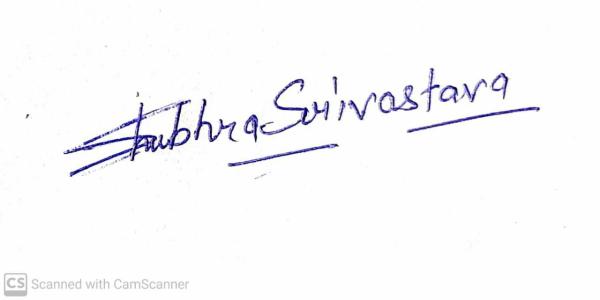 Shubhra Srivastava
CS Scanned with CamScanner